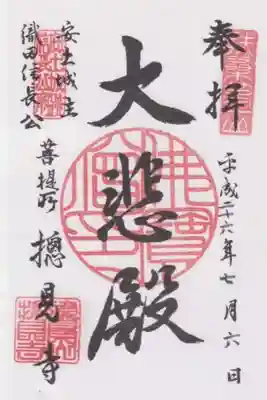 奉拝
平成二十六年七月六日
大悲殿
安土城主
織田信長公
菩提所 摠見寺